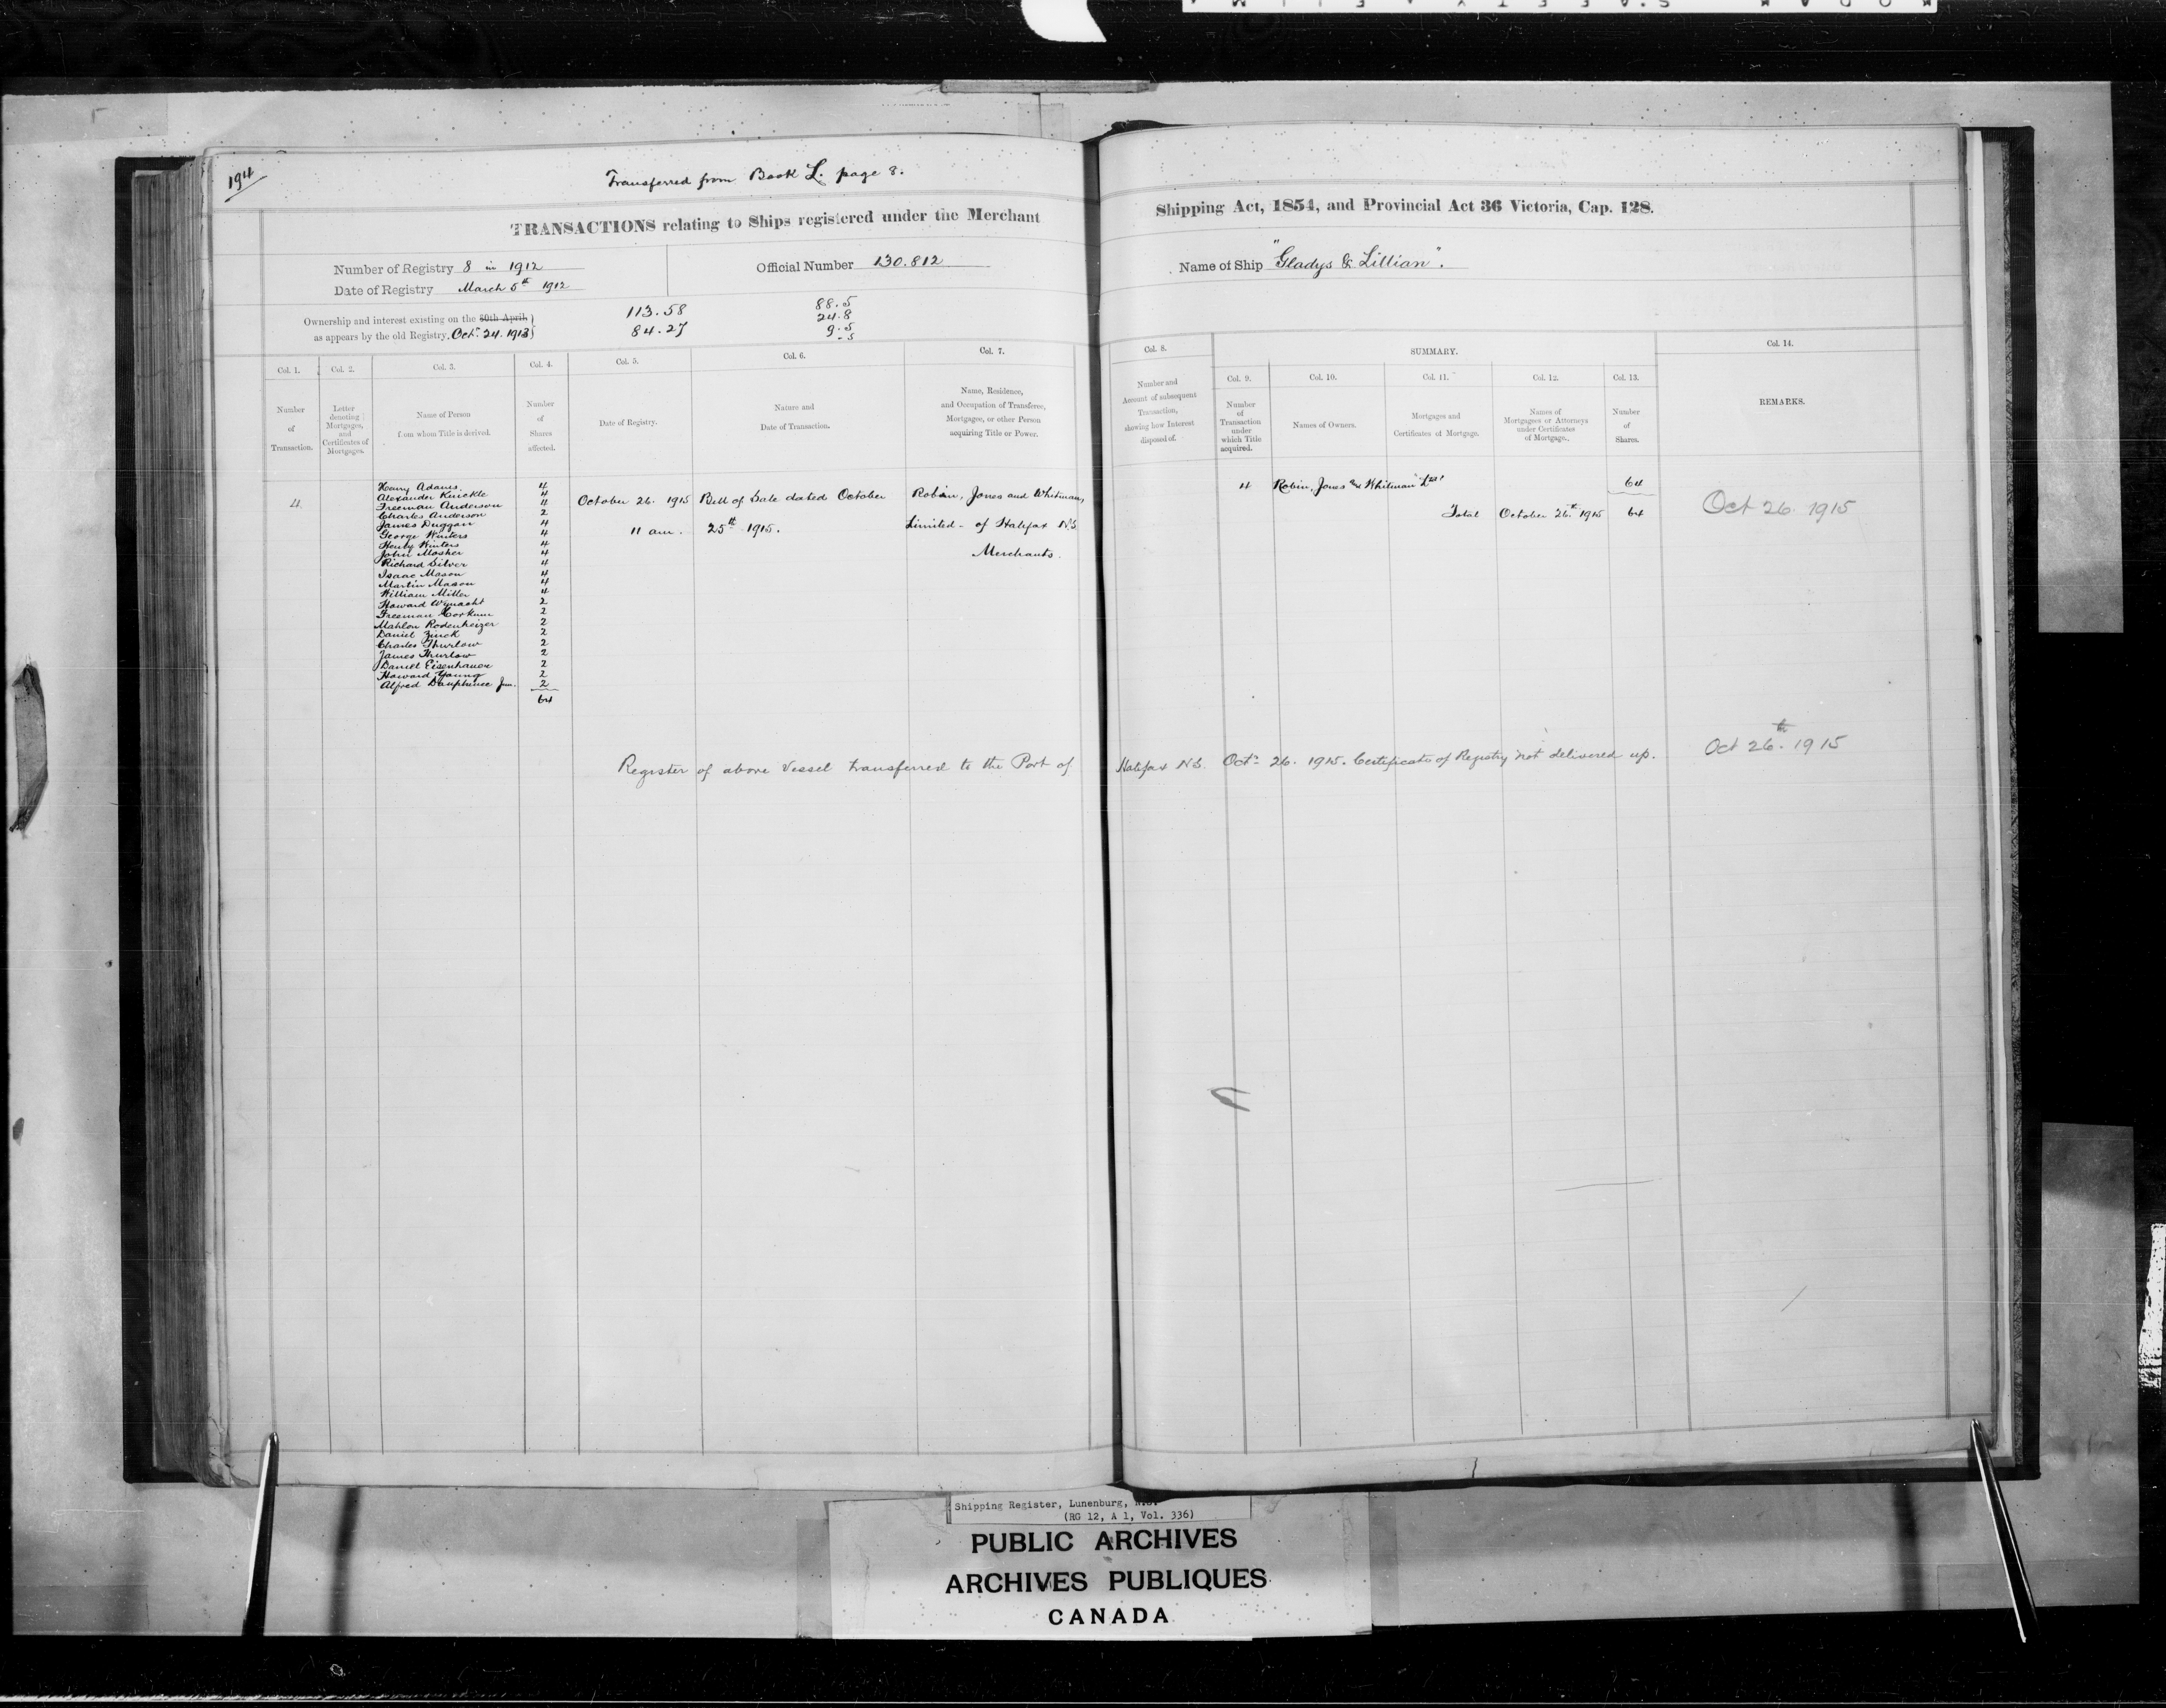 194
Transferred from Book L. page 8.
TRANSACTIONS relating to Ships registered under the Merchant Shipping Act, 1854, and Provincial Act 36 Victoria, Cap. 128.
Number of Registry 8 in 1912
Official Number 130.812
Name of Ship "Gladys & Lillian".
Date of Registry March 5th 1912
Ownership and interest existing on the 30th April
as appears by the old Registry. Oct. 24. 1913
113.58
84.27
88.5
24.8
9.5
.5
Col. 1.
Number
of
Transaction.
Col. 2.
Letter
denoting
Mortgages,
and
Certificates of
Mortgages.
Col. 3.
Name of Person
from whom Title is derived.
Col. 4.
Number
of
Shares
affected.
Col. 5.
Date of Registry.
Col. 6.
Nature and
Date of Transaction.
Col. 7.
Name, Residence,
and Occupation of Transferee,
Mortgagee, or other Person
acquiring Title or Power.
Col. 8.
Number and
Account of subsequent
Transaction,
shewing how Interest
disposed of.
SUMMARY.
Col. 9.
Number
of
Transaction
under
which Title
acquired.
Col. 10.
Names of Owners.
Col. 11.
Mortgages and
Certificates of Mortgage.
Col. 12.
Names of
Mortgagees or Attorneys
under Certificates
of Mortgage.
Col. 13.
Number
of
Shares.
Col. 14.
REMARKS.
4.
Henry Adams 4
Alexander Knickle 4
Freeman Anderson 4
Charles Anderson 2
James Duggan 4
George Winters 4
Henry Winters 4
John Mosher 4
Richard Silver 4
Isaac Mason 4
Martin Mason 4
William Miller 4
Howard Wynacht 2
Freeman Corkum 2
Mahlon Rodenheizer 2
Daniel Zinck 2
Charles Thurlow 2
James Thurlow 2
Daniel Eisenhauer 2
Howard Young 2
Alfred Dauphinee Jun. 2
64
October 26. 1915
11 am.
Bill of Sale dated October
25th 1915.
Robin, Jones and Whitman,
Limited - of Halifax N.S.
Merchants.
4 Robin, Jones and Whitman Ltd 64
Total October 26th 1915 64
Oct 26. 1915
Register of above Vessel transferred to the Port of Halifax N.S. Oct. 26. 1915. Certificate of Registry not delivered up.
Oct 26th. 1915
Shipping Register, Lunenburg, N.S.
(RG 12, A 1, Vol. 336)
PUBLIC ARCHIVES
ARCHIVES PUBLIQUES
CANADA